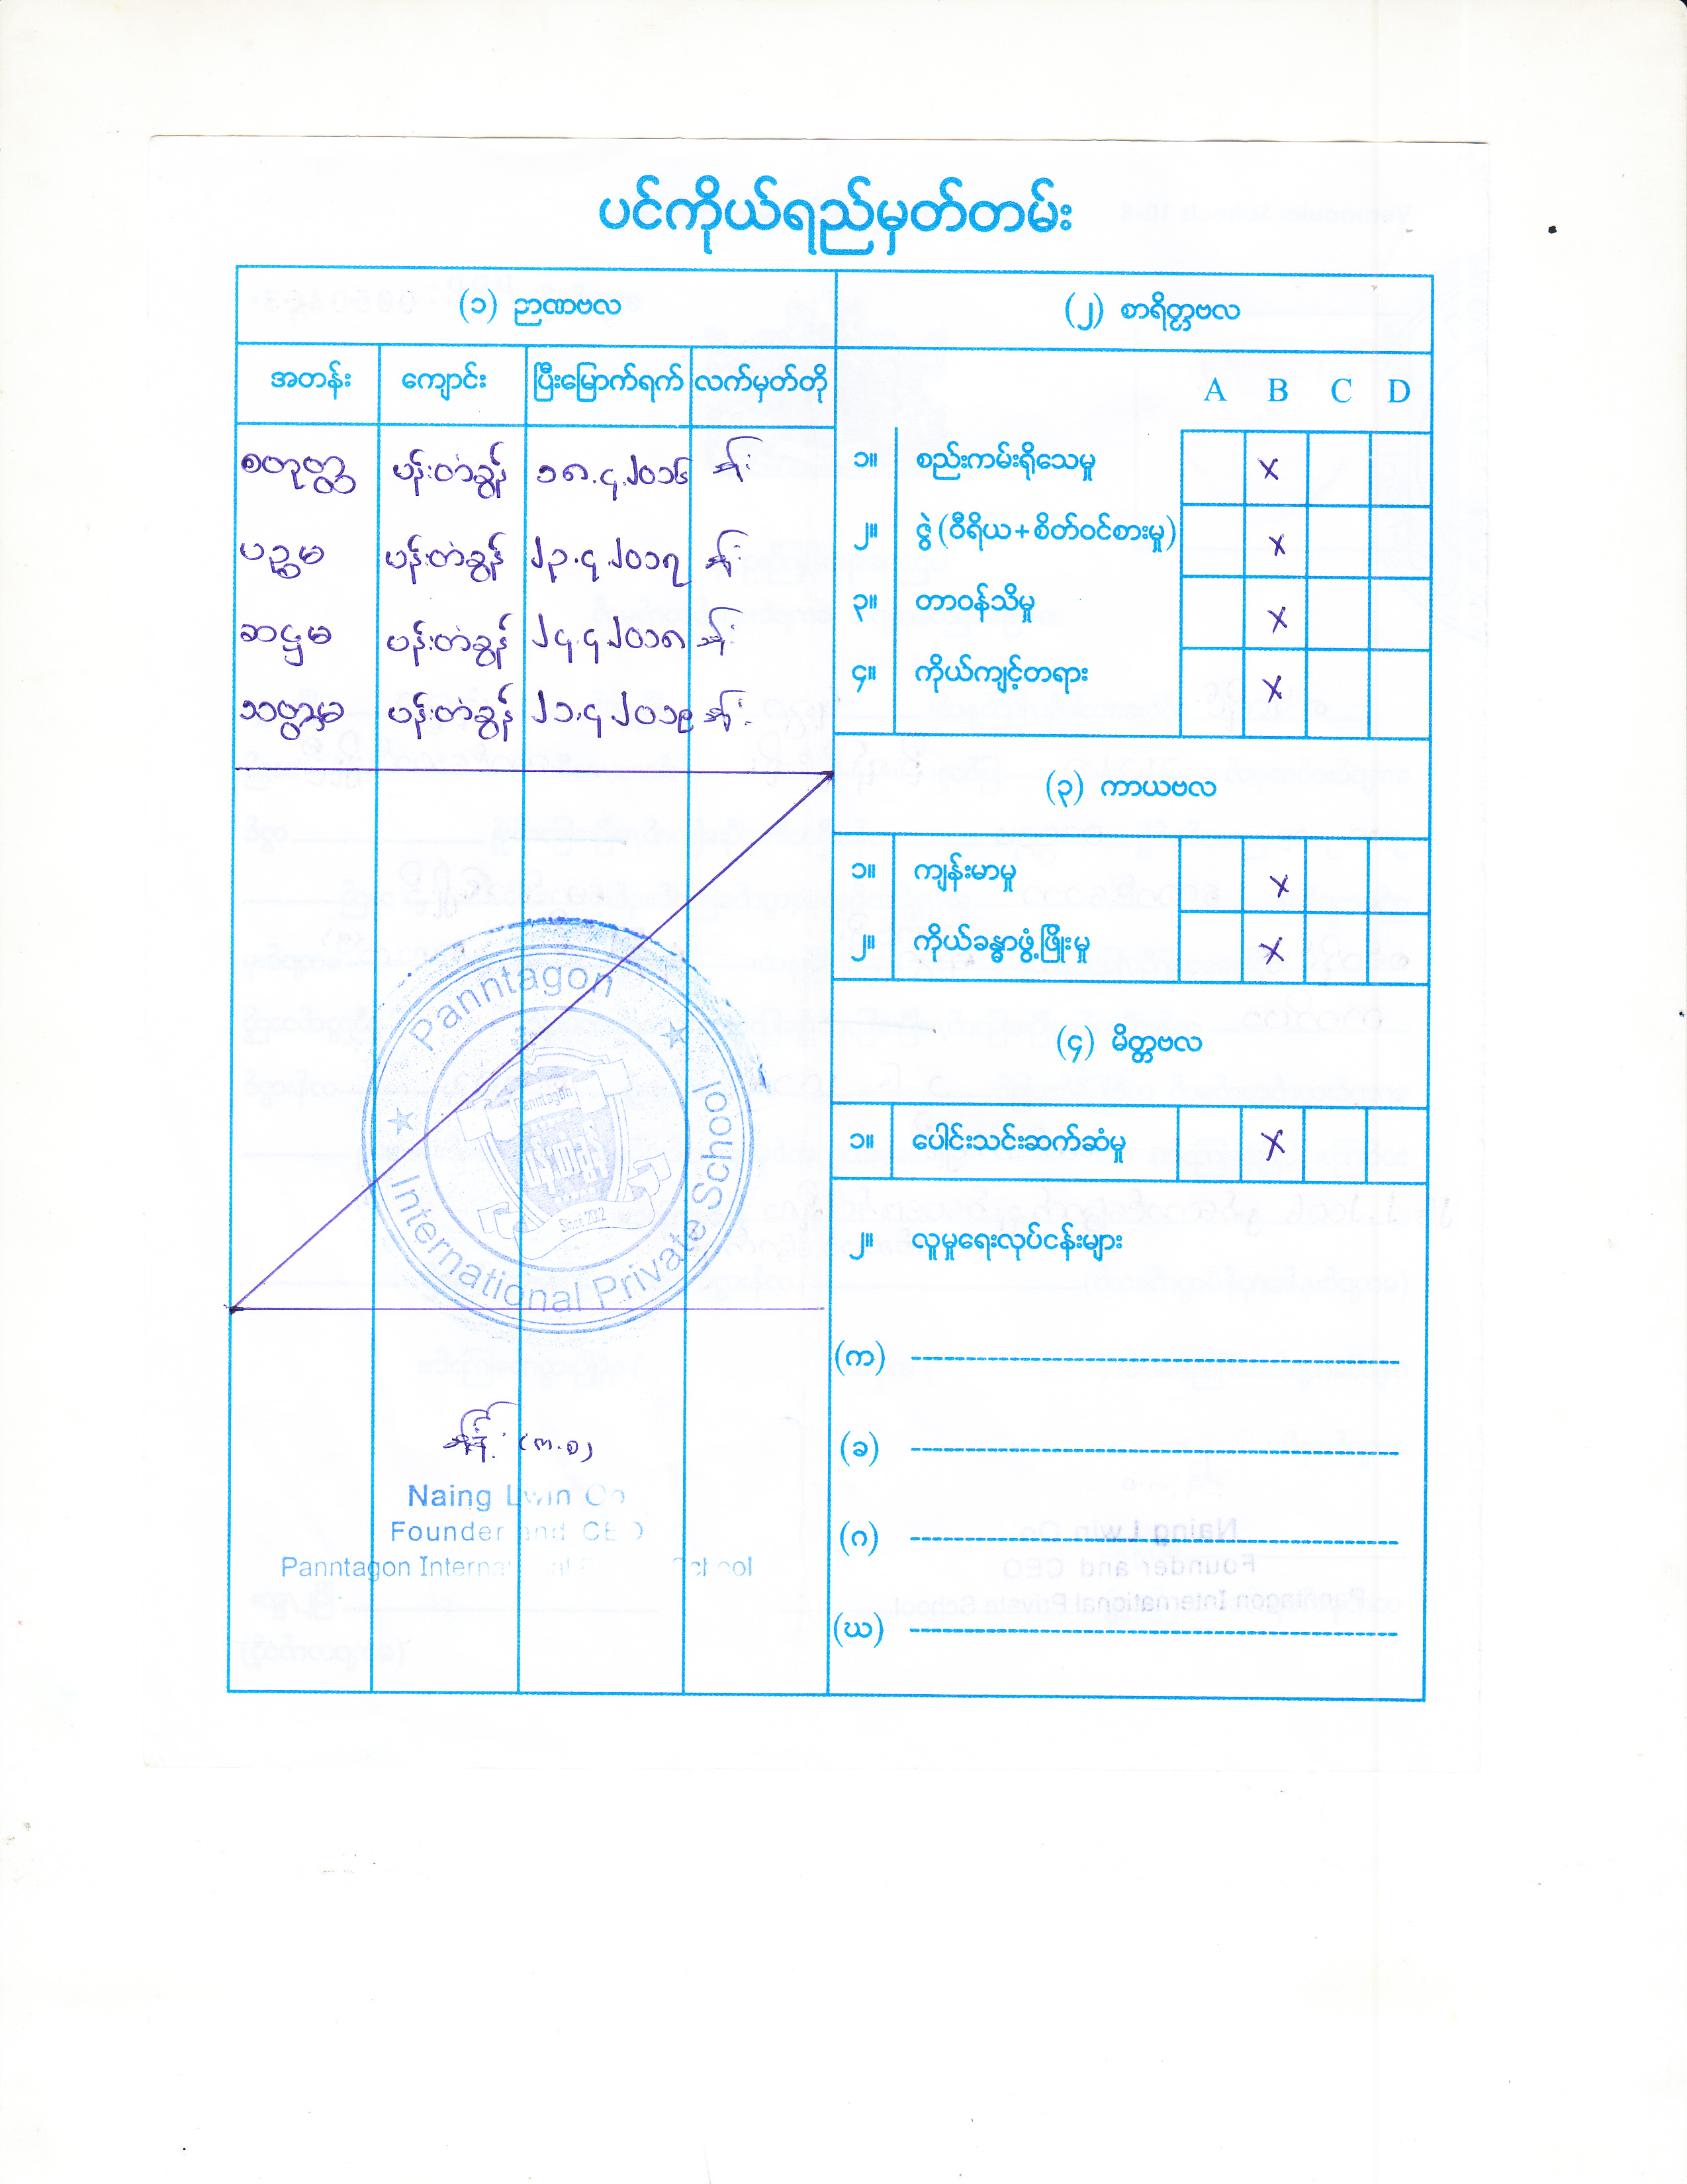 ပင်ကိုယ်ရည်မှတ်တမ်း
(၁) ဉာဏဗလ
အတန်း ကျောင်း ပြီးမြောက်ရက် လက်မှတ်တို
စတုတ္ထ ပန်းတံခွန် ၁၈.၄.၂၀၁၆
ပဉ္စမ ပန်းတံခွန် ၂၃.၄.၂၀၁၇
ဆဋ္ဌမ ပန်းတံခွန် ၂၄.၄.၂၀၁၈
သတ္တမ ပန်းတံခွန် ၂၁.၄.၂၀၁၉
Panntagon
International Private School
Panntagon
Since 2012
(က.စ)
Naing Lwin Oo
Founder and CEO
Panntagon International School
(၂) စာရိတ္တဗလ
A B C D
၁။ စည်းကမ်းရိုသေမှု X
၂။ ဇွဲ (ဝီရိယ+စိတ်ဝင်စားမှု) X
၃။ တာဝန်သိမှု X
၄။ ကိုယ်ကျင့်တရား X
(၃) ကာယဗလ
၁။ ကျန်းမာမှု X
၂။ ကိုယ်ခန္ဓာဖွံ့ဖြိုးမှု X
(၄) မိတ္တဗလ
၁။ ပေါင်းသင်းဆက်ဆံမှု X
၂။ လူမှုရေးလုပ်ငန်းများ
(က)
(ခ)
(ဂ)
(ဃ)